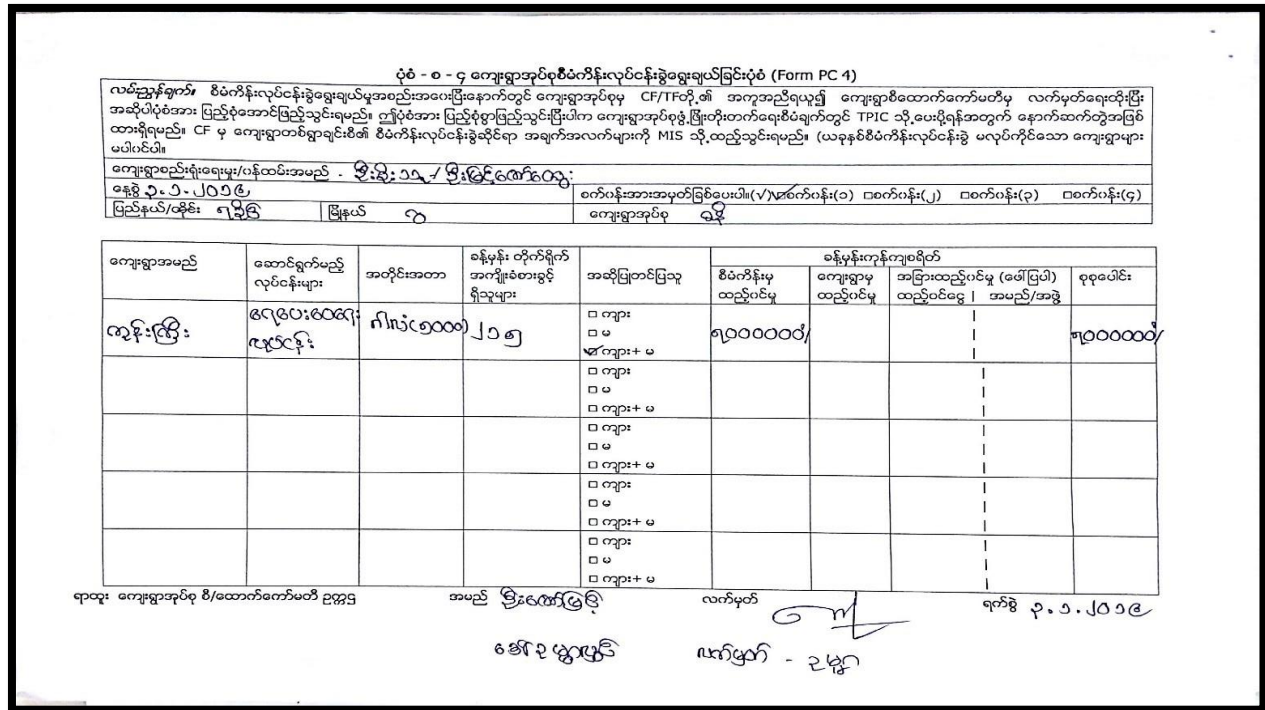 ပုံစံ - စ - ၄ ကျေးရွာအုပ်စုစီမံကိန်းလုပ်ငန်းခွဲရွေးချယ်ခြင်းပုံစံ (Form PC 4)
လမ်းညွှန်ချက်။ စီမံကိန်းလုပ်ငန်းခွဲရွေးချယ်မှုအစည်းအဝေးပြီးနောက်တွင် ကျေးရွာအုပ်စုမှ CF/TFတို့၏ အကူအညီရယူ၍ ကျေးရွာစီထောက်ကော်မတီမှ လက်မှတ်ရေးထိုးပြီး
အဆိုပါပုံစံအား ပြည့်စုံအောင်ဖြည့်သွင်းရမည်။ ဤပုံစံအား ပြည့်စုံစွာဖြည့်သွင်းပြီးပါက ကျေးရွာအုပ်စုဖွံ့ဖြိုးတိုးတက်ရေးစီမံချက်တွင် TPIC သို့ပေးပို့ရန်အတွက် နောက်ဆက်တွဲအဖြစ်
ထားရှိရမည်။ CF မှ ကျေးရွာတစ်ရွာချင်းစီ၏ စီမံကိန်းလုပ်ငန်းခွဲဆိုင်ရာ အချက်အလက်များကို MIS သို့ထည့်သွင်းရမည်။ (ယခုနှစ်စီမံကိန်းလုပ်ငန်းခွဲ မလုပ်ကိုင်သော ကျေးရွာများ
မပါဝင်ပါ။
ကျေးရွာစည်းရုံးရေးမှုး/ဝန်ထမ်းအမည် -
နေ့စွဲ ၃.၁.၂၀၁၉ စက်ဝန်းအားအမှတ်ခြစ်ပေးပါ။(√) စက်ဝန်း(၁) □စက်ဝန်း(၂) □စက်ဝန်း(၃) □စက်ဝန်း(၄)
ပြည်နယ်/တိုင်း ရခိုင် မြို့နယ် ဂွ ကျေးရွာအုပ်စု
ကျေးရွာအမည် ဆောင်ရွက်မည့် လုပ်ငန်းများ အတိုင်းအတာ ခန့်မှန်း တိုက်ရိုက် အကျိုးခံစားခွင့် ရှိသူများ အဆိုပြုတင်ပြသူ ခန့်မှန်းကုန်ကျစရိတ်
စီမံကိန်းမှ ထည့်ဝင်မှု ကျေးရွာမှ ထည့်ဝင်မှု အခြားထည့်ဝင်မှု (ဖော်ပြပါ) ထည့်ဝင်ငွေ | အမည်/အဖွဲ့ စုစုပေါင်း
ကျွန်းကြီး ရေပေးဝေရေး လုပ်ငန်း ဂါလံ(၅၀၀၀) ၂၁၅ □ ကျား
□ မ
☑ ကျား+ မ ၇၀၀၀၀၀၀/ ၇၀၀၀၀၀၀/
□ ကျား
□ မ
□ ကျား+ မ
□ ကျား
□ မ
□ ကျား+ မ
□ ကျား
□ မ
□ ကျား+ မ
□ ကျား
□ မ
□ ကျား+ မ
ရာထူး ကျေးရွာအုပ်စု စီ/ထောက်ကော်မတီ ဥက္ကဋ္ဌ အမည် လက်မှတ် ရက်စွဲ ၃.၁.၂၀၁၉
လက်မှတ် -